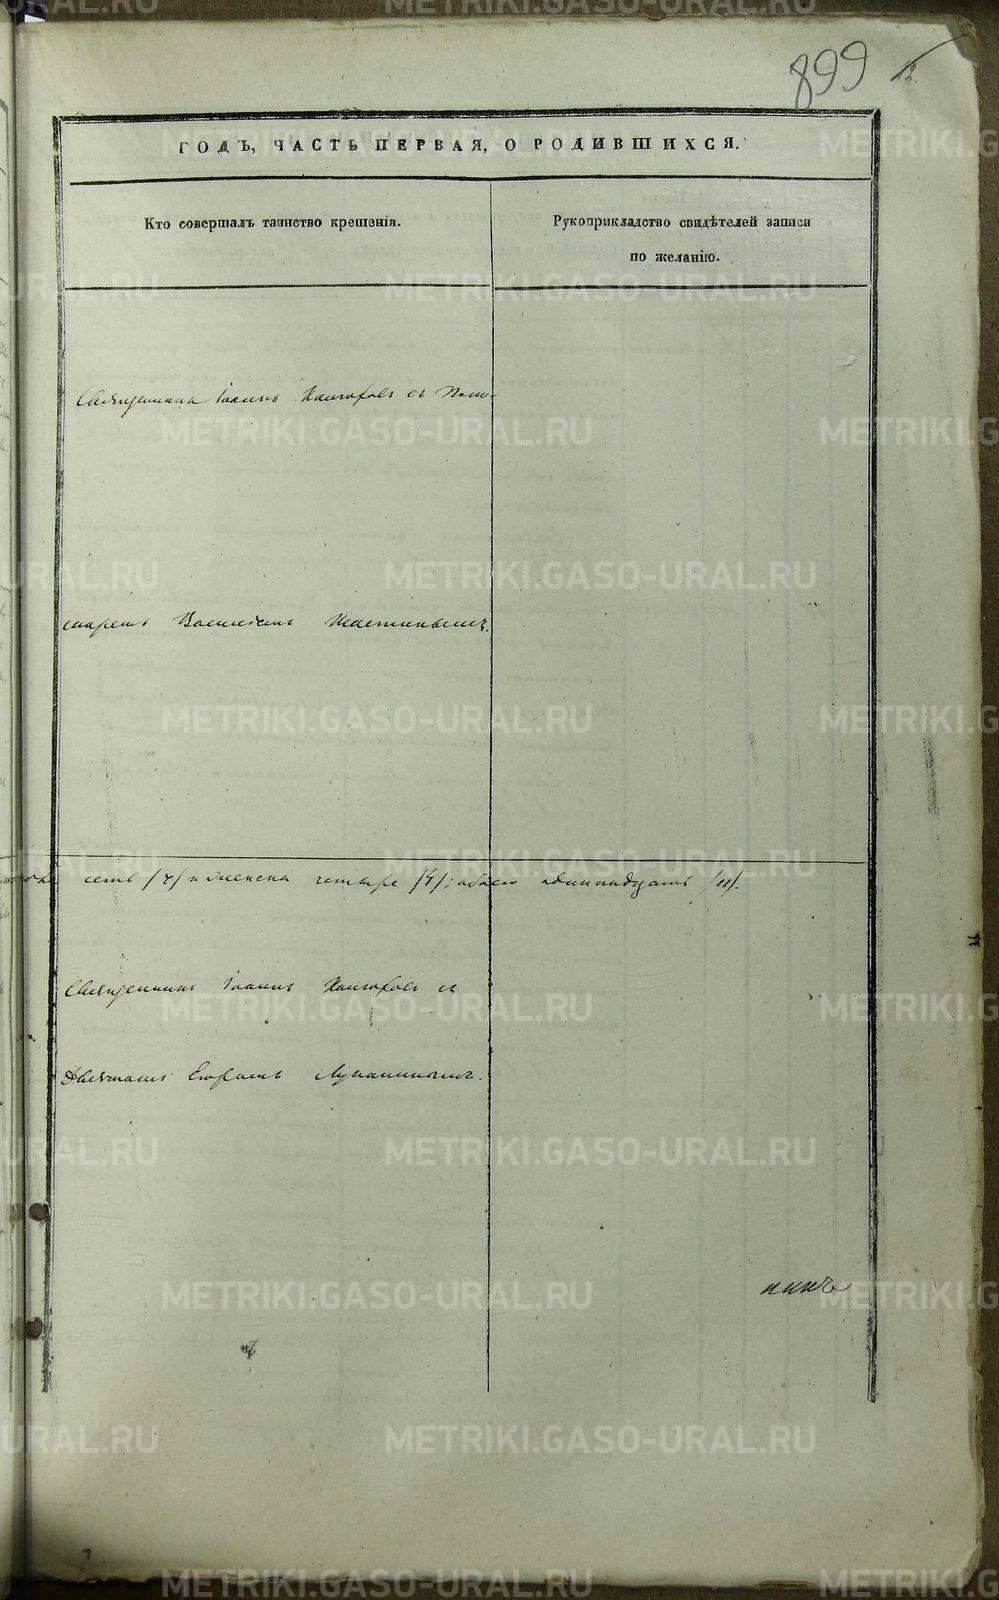 899
12.
ГОДЪ, ЧАСТЬ ПЕРВАЯ, О РОДИВШИХСЯ.
Кто совершалъ таинство крещенія.
Рукоприкладство свидѣтелей записи
по желанію.
Священникъ Іоаннъ съ Поно-
маремъ Василіемъ
семь /7/ и женска четыре /4/; обоего одиннадцать /11/.
Священникъ Іоаннъ съ
Дьячкомъ Егоромъ
METRIKI.GASO-URAL.RU